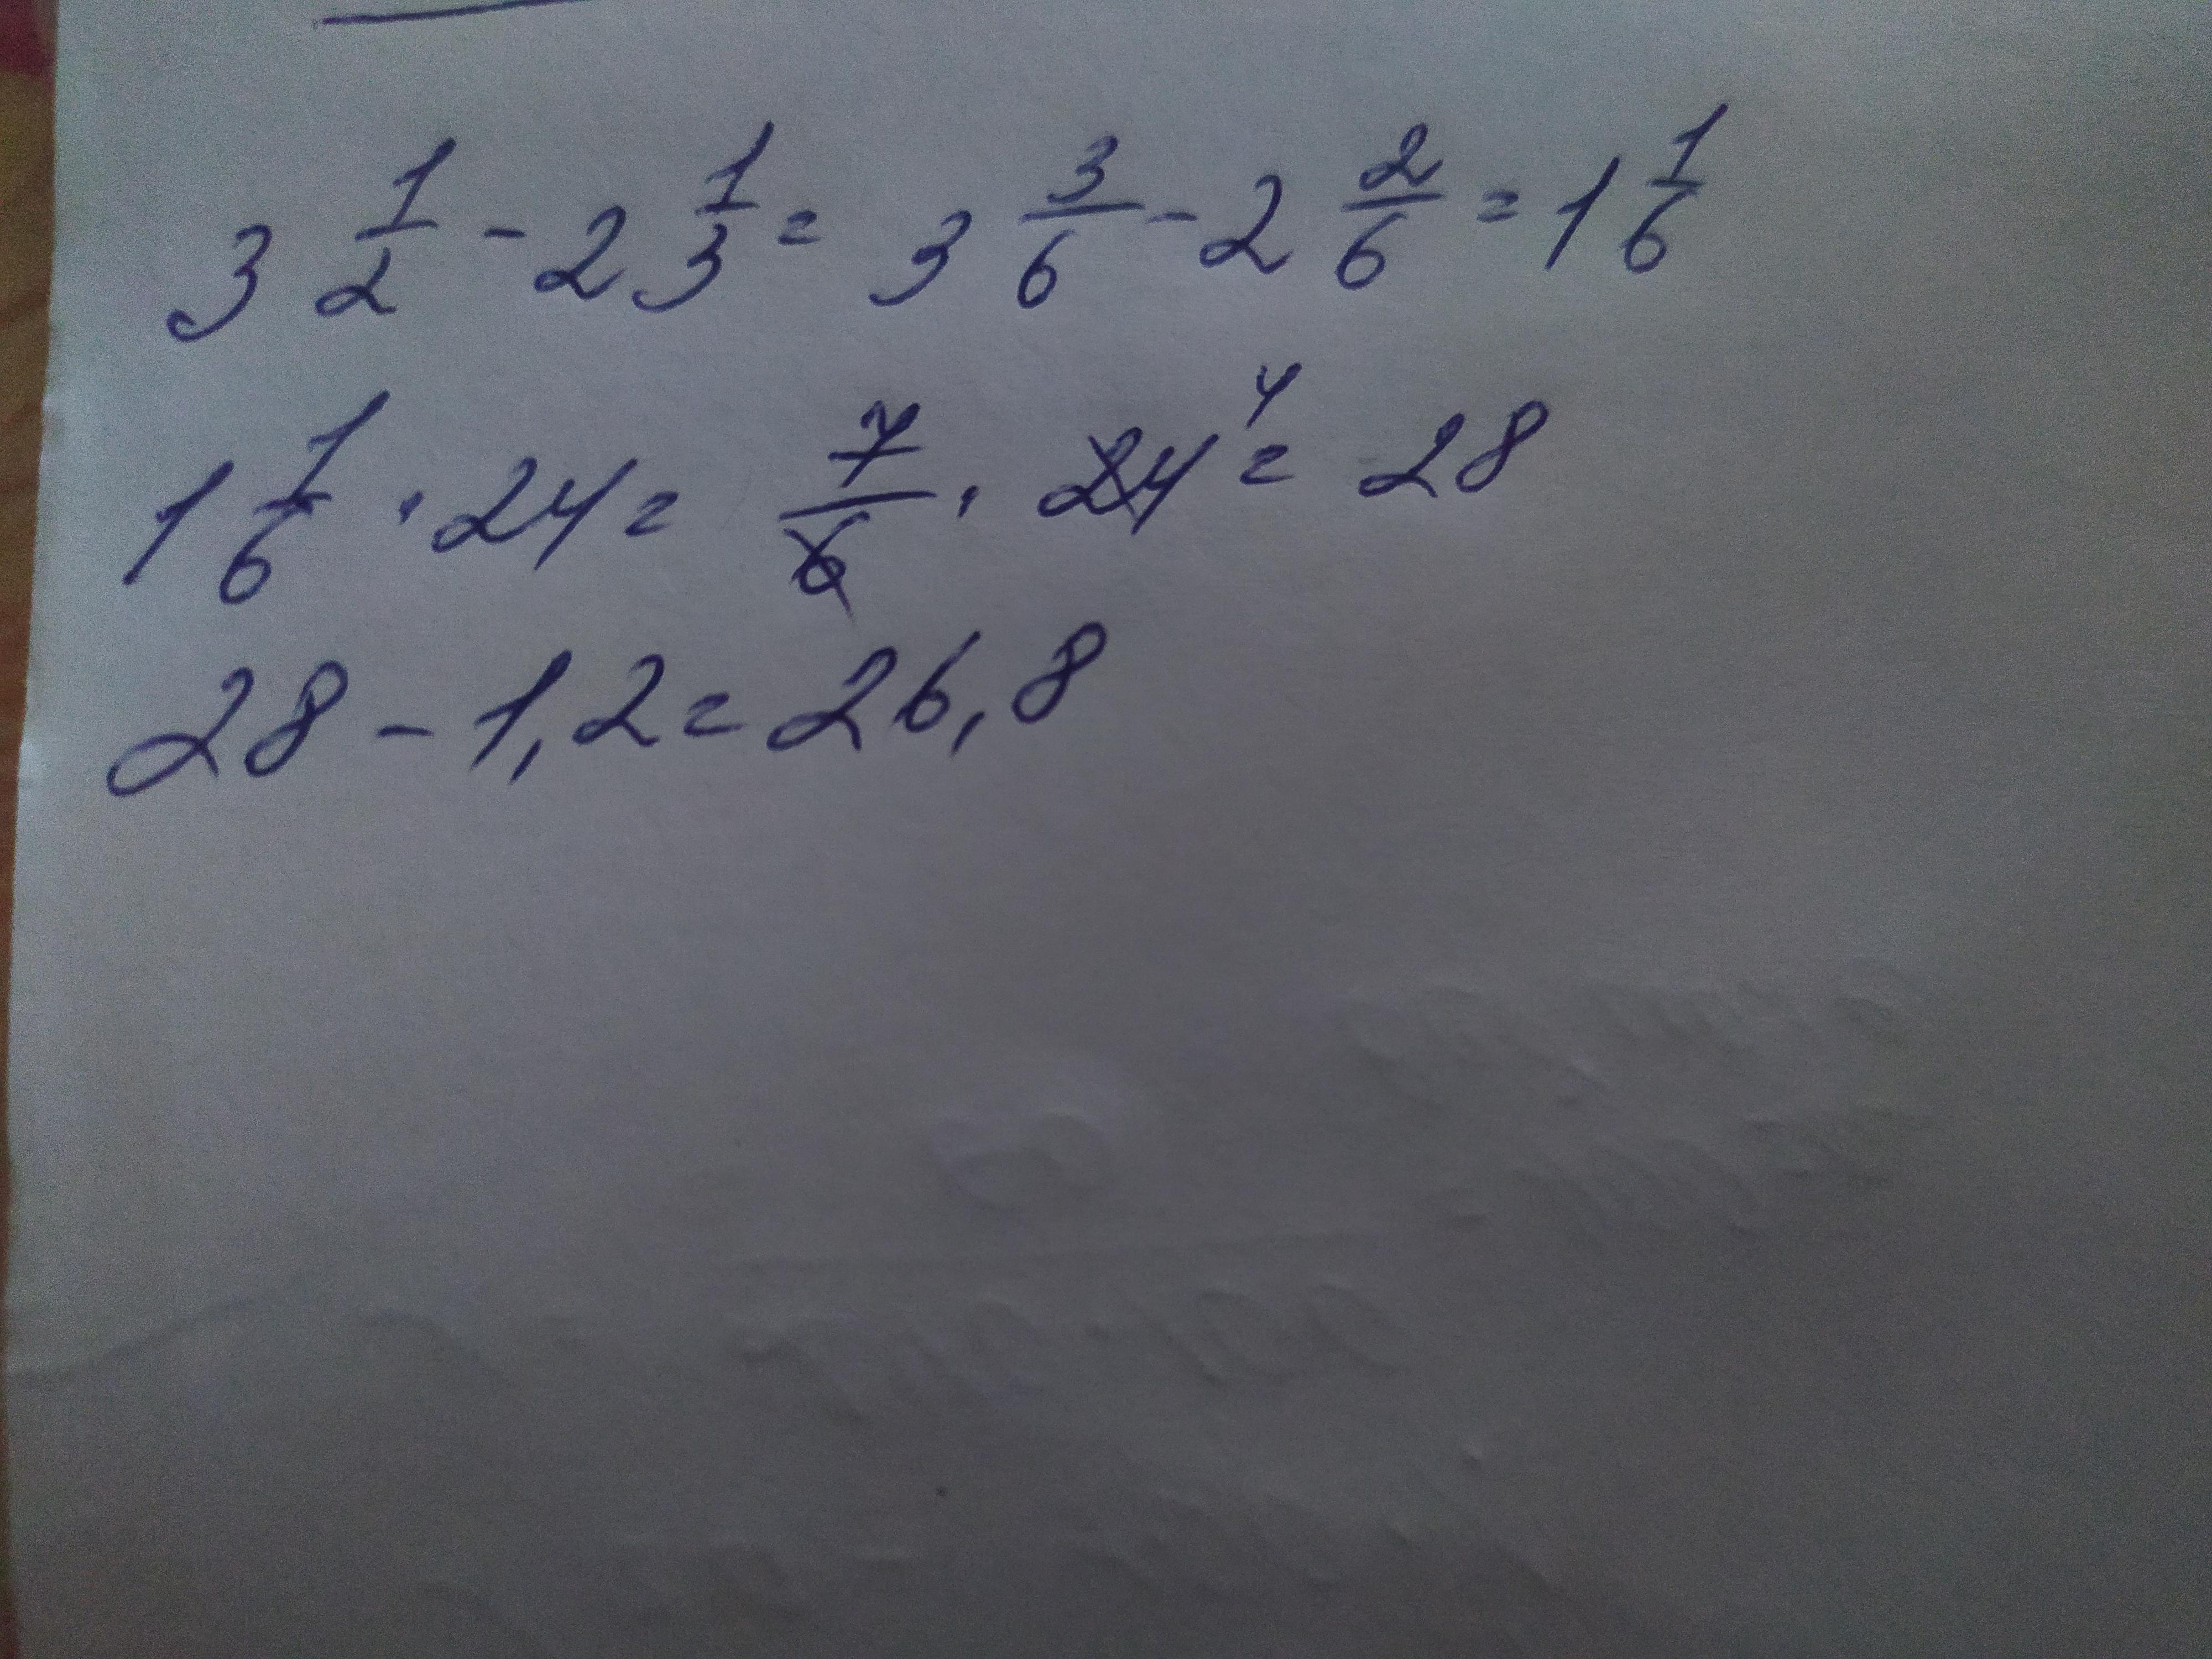 3 1/2 - 2 1/3 = 3 3/6 - 2 2/6 = 1 1/6
1 1/6 · 24 = 7/6 · 24 4 = 28
28 - 1,2 = 26,8